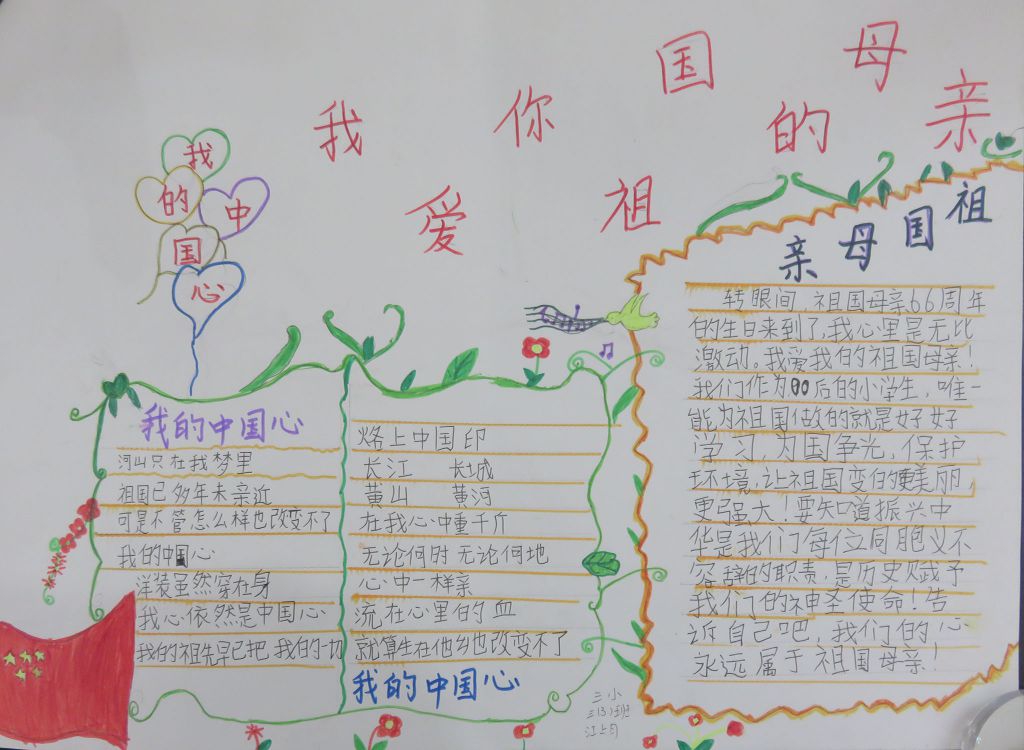 我爱你祖国的母亲
我的中国心
我的中国心
河山只在我梦里
祖国已多年未亲近
可是不管怎么样也改变不了
我的中国心
洋装虽然穿在身
我心依然是中国心
我的祖先早已把我的一切
烙上中国印
长江 长城
黄山 黄河
在我心中重千斤
无论何时 无论何地
心中一样亲
流在心里的血
就算生在他乡也改变不了
我的中国心
祖国母亲
转眼间,祖国母亲66周年
的生日来到了,我心里是无比
激动。我爱我的祖国母亲!
我们作为00后的小学生,唯一
能为祖国做的就是好好
学习,为国争光,保护
环境,让祖国变的更美丽,
更强大!要知道振兴中
华是我们每位同胞义不
容辞的职责,是历史赋予
我们的神圣使命!告
诉自己吧,我们的心
永远属于祖国母亲!
三小
三(3)班